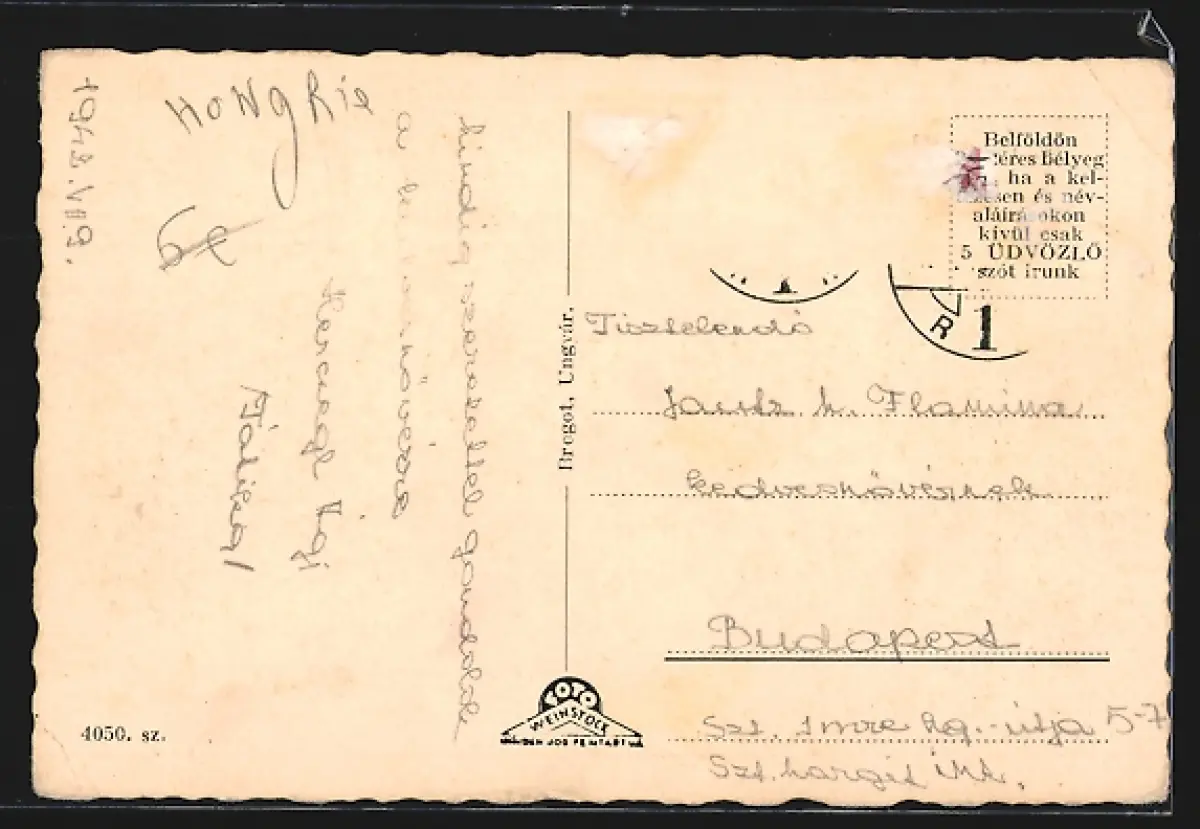 1942. VII 9.
Hongrie
Mindig szeretettel gondolok
a
Herczegh Ági
Bregot, Ungvár.
4050. sz.
FOTO
WEINSTOCK
Belföldön
téres Bélyeg
ha a kel-
tezésen és név-
aláírásokon
kívül csak
5 ÜDVÖZLŐ
szót írunk
R 1
Tisztelendő
Jantz M. Flamina
kedvesnővérnek
Budapest
Szt. Imre hg.-útja 5-7
Szt. Margit int.